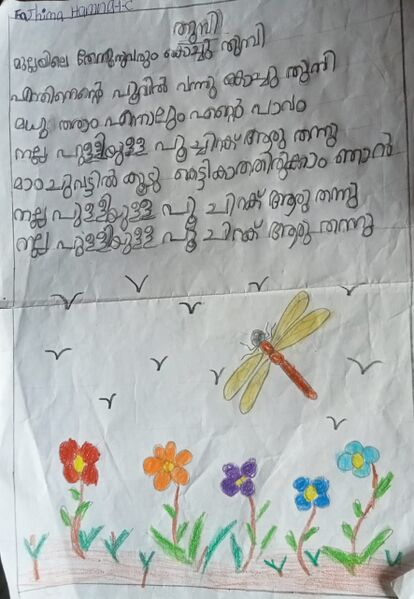 Fathima Hamna 1-C
തുമ്പി
മുല്ലയിലെ തേനുണ്ണുവരും കൊച്ചു തുമ്പി
എന്തിനെന്റെ പൂവിൽ വന്നു കൊച്ചു തുമ്പി
മധു തരാം എന്നാലും എന്റെ പാവം
നല്ല പുള്ളിയുള്ള പൂ ചിറക് ആരു തന്നു
മാഞ്ചുവട്ടിൽ കൂടു കെട്ടി കാത്തിരിക്കാം ഞാൻ
നല്ല പുള്ളിയുള്ള പൂ ചിറക് ആരു തന്നു
നല്ല പുള്ളിയുള്ള പൂ ചിറക് ആരു തന്നു